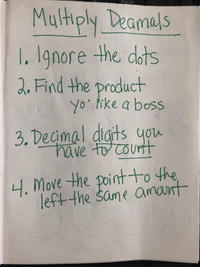 Multiply Decimals
1. Ignore the dots
2. Find the product
yo' like a boss
3. Decimal digits you
have to count
4. Move the point to the
left the same amount